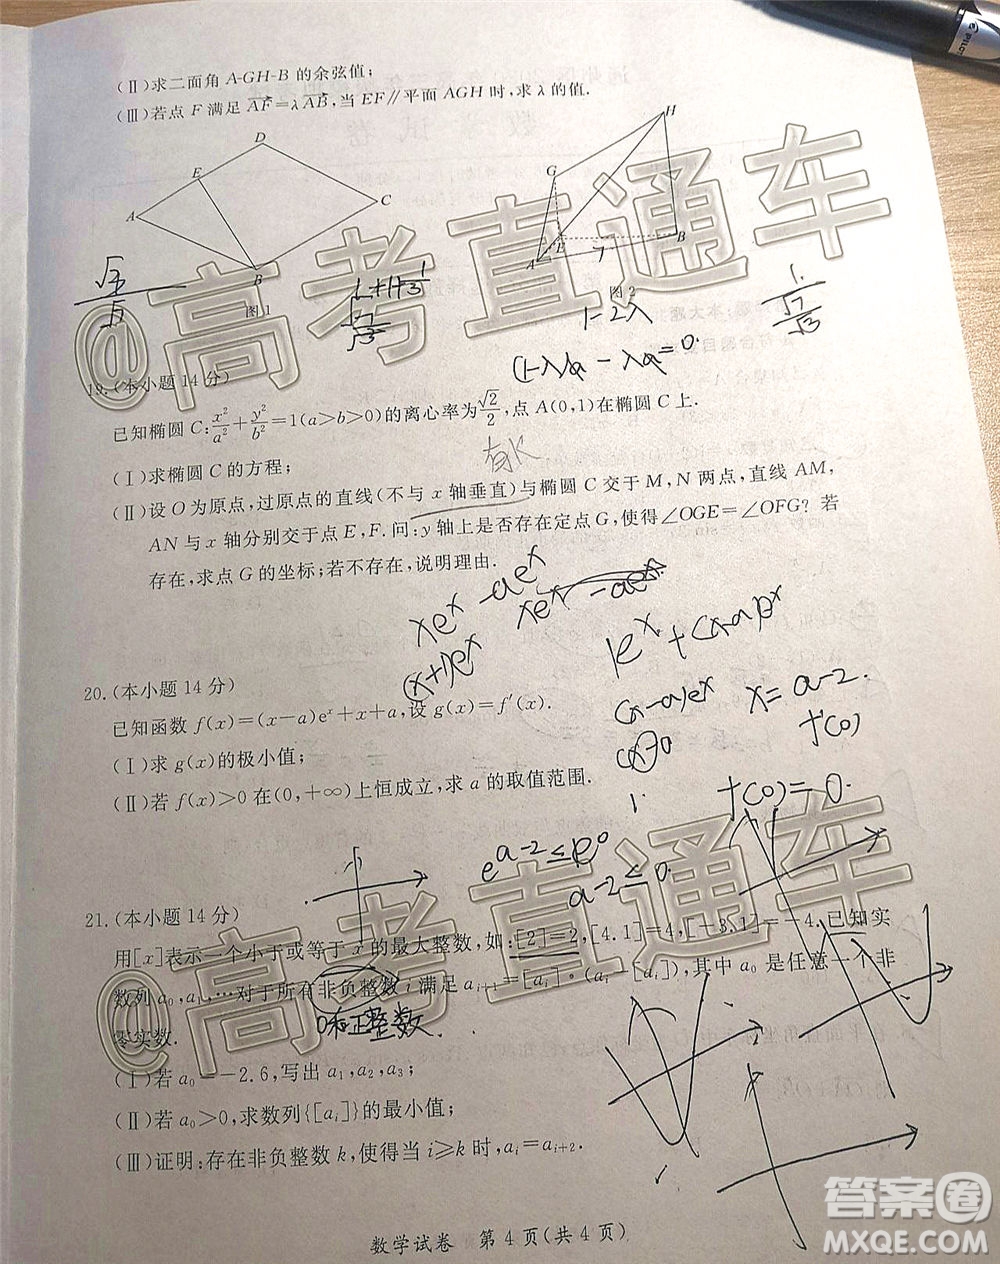 (Ⅱ)求二面角 A-GH-B 的余弦值;
(Ⅲ)若点 F 满足 AF=λAB,当 EF∥平面 AGH 时,求 λ 的值.
D
E
A
C
B
图 1
H
G
E
B
A
图 2
1-2λ
(1-λ)a-λa=0.
19.(本小题 14 分)
已知椭圆 C:x²/a²+y²/b²=1(a>b>0)的离心率为√2/2,点 A(0,1)在椭圆 C 上.
(Ⅰ)求椭圆 C 的方程;
有k
(Ⅱ)设 O 为原点,过原点的直线(不与 x 轴垂直)与椭圆 C 交于 M,N 两点,直线 AM,
AN 与 x 轴分别交于点 E,F. 问:y 轴上是否存在定点 G,使得∠OGE=∠OFG? 若
存在,求点 G 的坐标;若不存在,说明理由.
xeˣ-aeˣ
xeˣ-aeˣ
(x+1)eˣ
1eˣ+(x-a)eˣ
20.(本小题 14 分)
已知函数 f(x)=(x-a)eˣ+x+a,设 g(x)=f′(x).
(x-a)eˣ
x=a-2.
(Ⅰ)求 g(x)的极小值;
(Ⅱ)若 f(x)>0 在(0,+∞)上恒成立,求 a 的取值范围.
f(0)=0.
e^(a-2)≤e⁰
a-2≤0.
21.(本小题 14 分)
用[x]表示一个小于或等于 x 的最大整数,如:[2]=2,[4.1]=4,[-3.1]=-4.已知实
数列 a₀,a₁,…对于所有非负整数 i 满足 aᵢ₊₁=[aᵢ]·(aᵢ-[aᵢ]),其中 a₀ 是任意一个非
零实数.
0和正整数.
(Ⅰ)若 a₀=-2.6,写出 a₁,a₂,a₃;
(Ⅱ)若 a₀>0,求数列{[aᵢ]}的最小值;
(Ⅲ)证明:存在非负整数 k,使得当 i≥k 时,aᵢ=aᵢ₊₂.
数学试卷 第 4 页(共 4 页)
@高考直通车
@高考直通车
答案圈
MXQE.COM